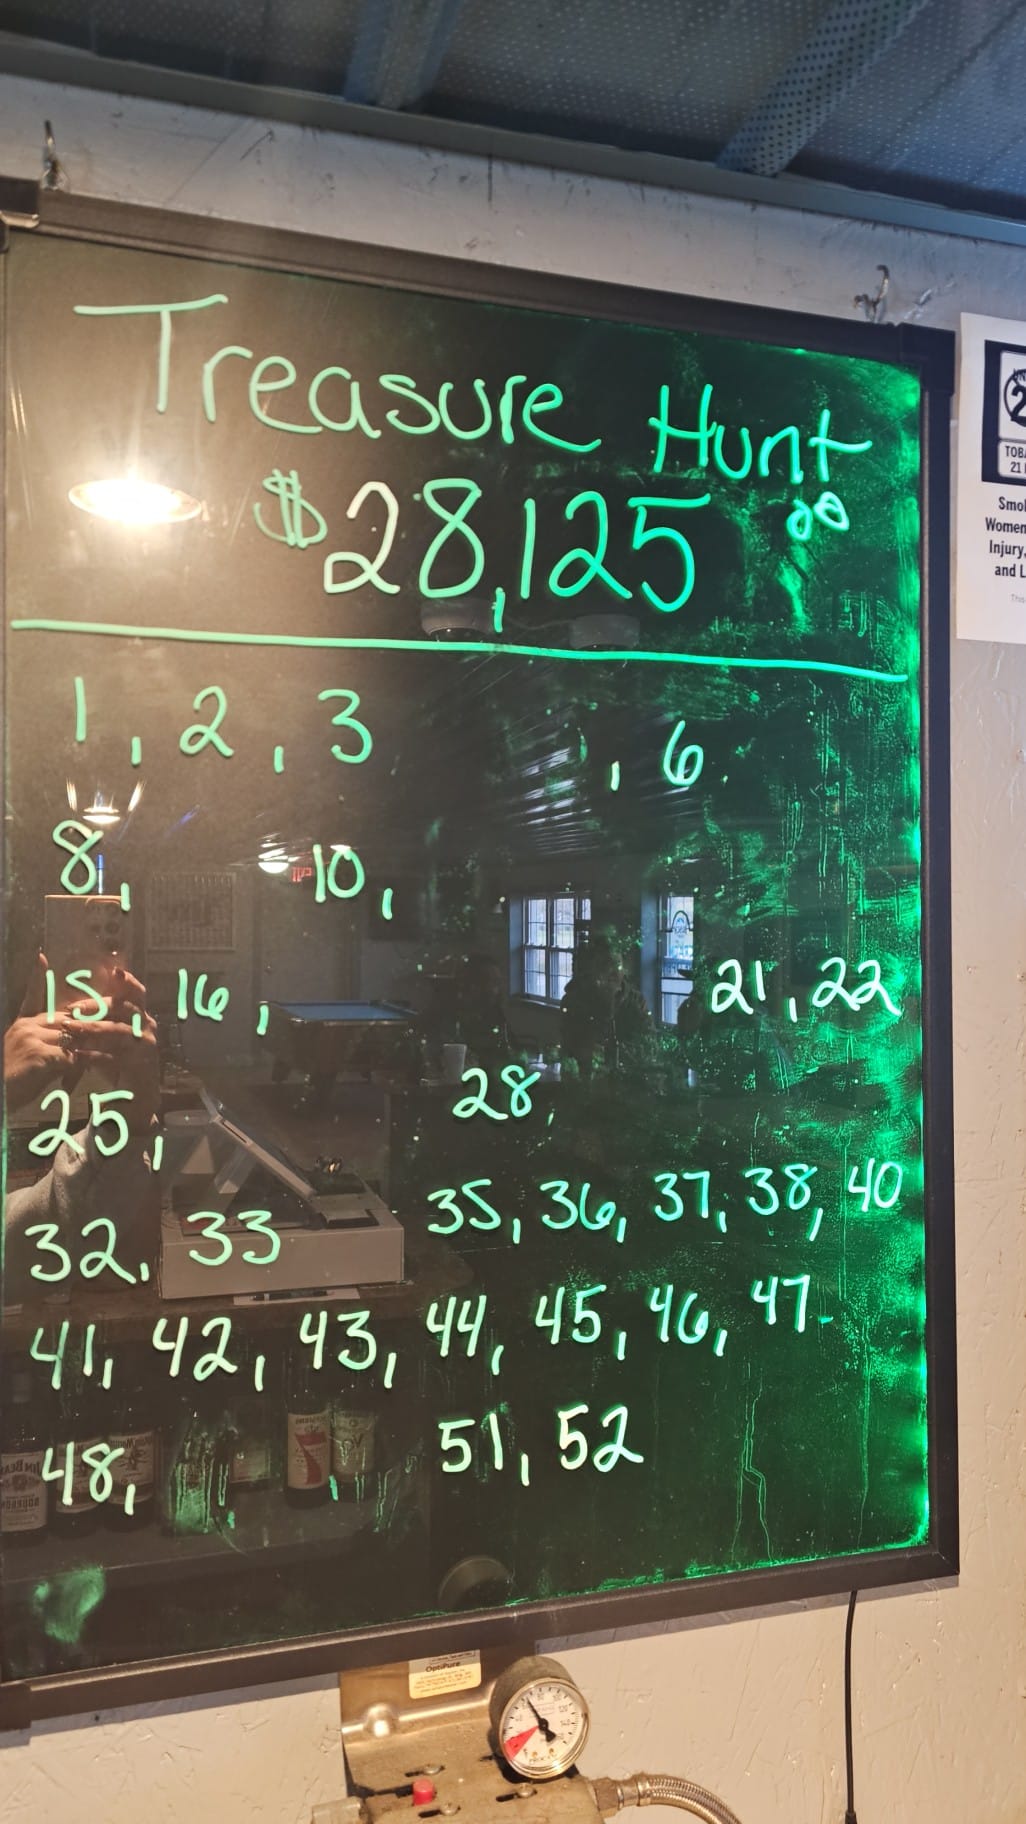 Treasure Hunt
$28,125 00
1, 2, 3 , 6
8, 10,
15, 16, 21, 22
25, 28,
32, 33 35, 36, 37, 38, 40
41, 42, 43, 44, 45, 46, 47
48, 51, 52
TOBA
21
Smo
Women
Injury,
and L
This
OptiPure